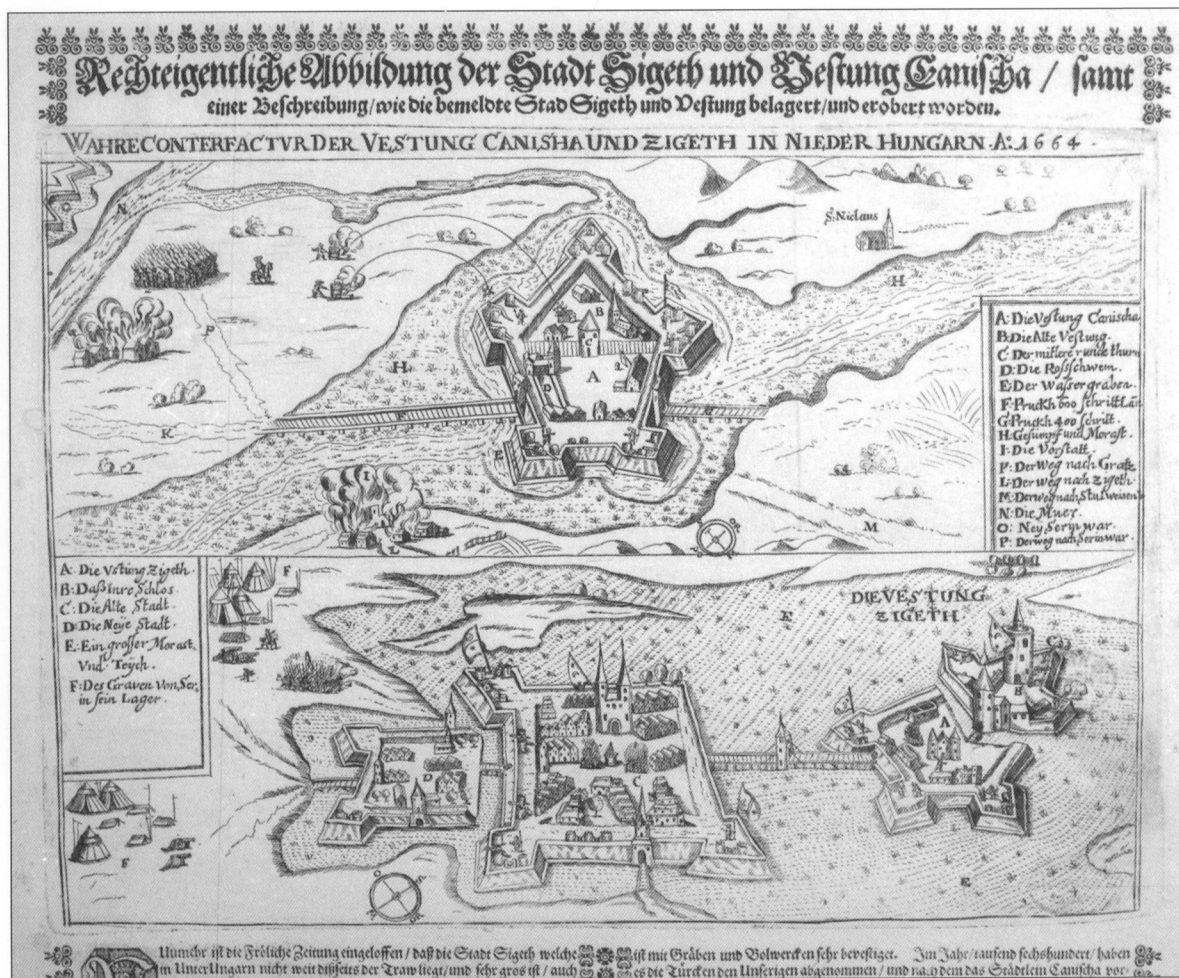 Rechteigentliche Abbildung der Stadt Sigeth und Vestung Canischa / samt
einer Beschreibung / wie die bemeldte Stad Sigeth und Vestung belagert / und erobert worden.
WAHRE CONTERFACTVR DER VESTUNG CANISHA UND ZIGETH IN NIEDER HUNGARN. Aº. 1664.
S. Niclaus
A: Die Vestung Canischa
B: Die Alte Vestung.
C: Der mitlere runde thurn
D: Die Rosschwem.
E: Der Wassergraben.
F: Pruckh 600 schritt Lan
G: Pruckh 400 schrit.
H: Gesumpf und Morast.
I: Die Vorstatt.
P: Der Weg nach Gratz
L: Der weg nach Zigeth
M: Der weg nach Stulweisen
N: Die Muer.
O: Ney Serinwar.
P: Der weg nach Serinwar.
N
P
K
H
F
E
I
L
A
B
C
D
G
H
M
A: Die Vstung Zigeth.
B: Daß inre Schlos
C: Die Alte Stadt.
D: Die Neye Stadt.
E: Ein grosser Morast
Vnd Teych.
F: Des Graven von Ser,
in sein Lager.
DIE VESTUNG
ZIGETH
F
F
E
A
B
C
D
E
Nunmehr ist die Fröliche Zeitung eingeloffen / daß die Stadt Sigeth welche
in Unter Ungarn nicht weit dißseits der Traw liegt / und sehr gros ist / auch
ist mit Gräben und Bolwercken sehr bevestiget. Im Jahr / tausend sechshundert / haben
es die Türcken den Unserigen abgenommen / und nachdem das Städtlein Canischa vor